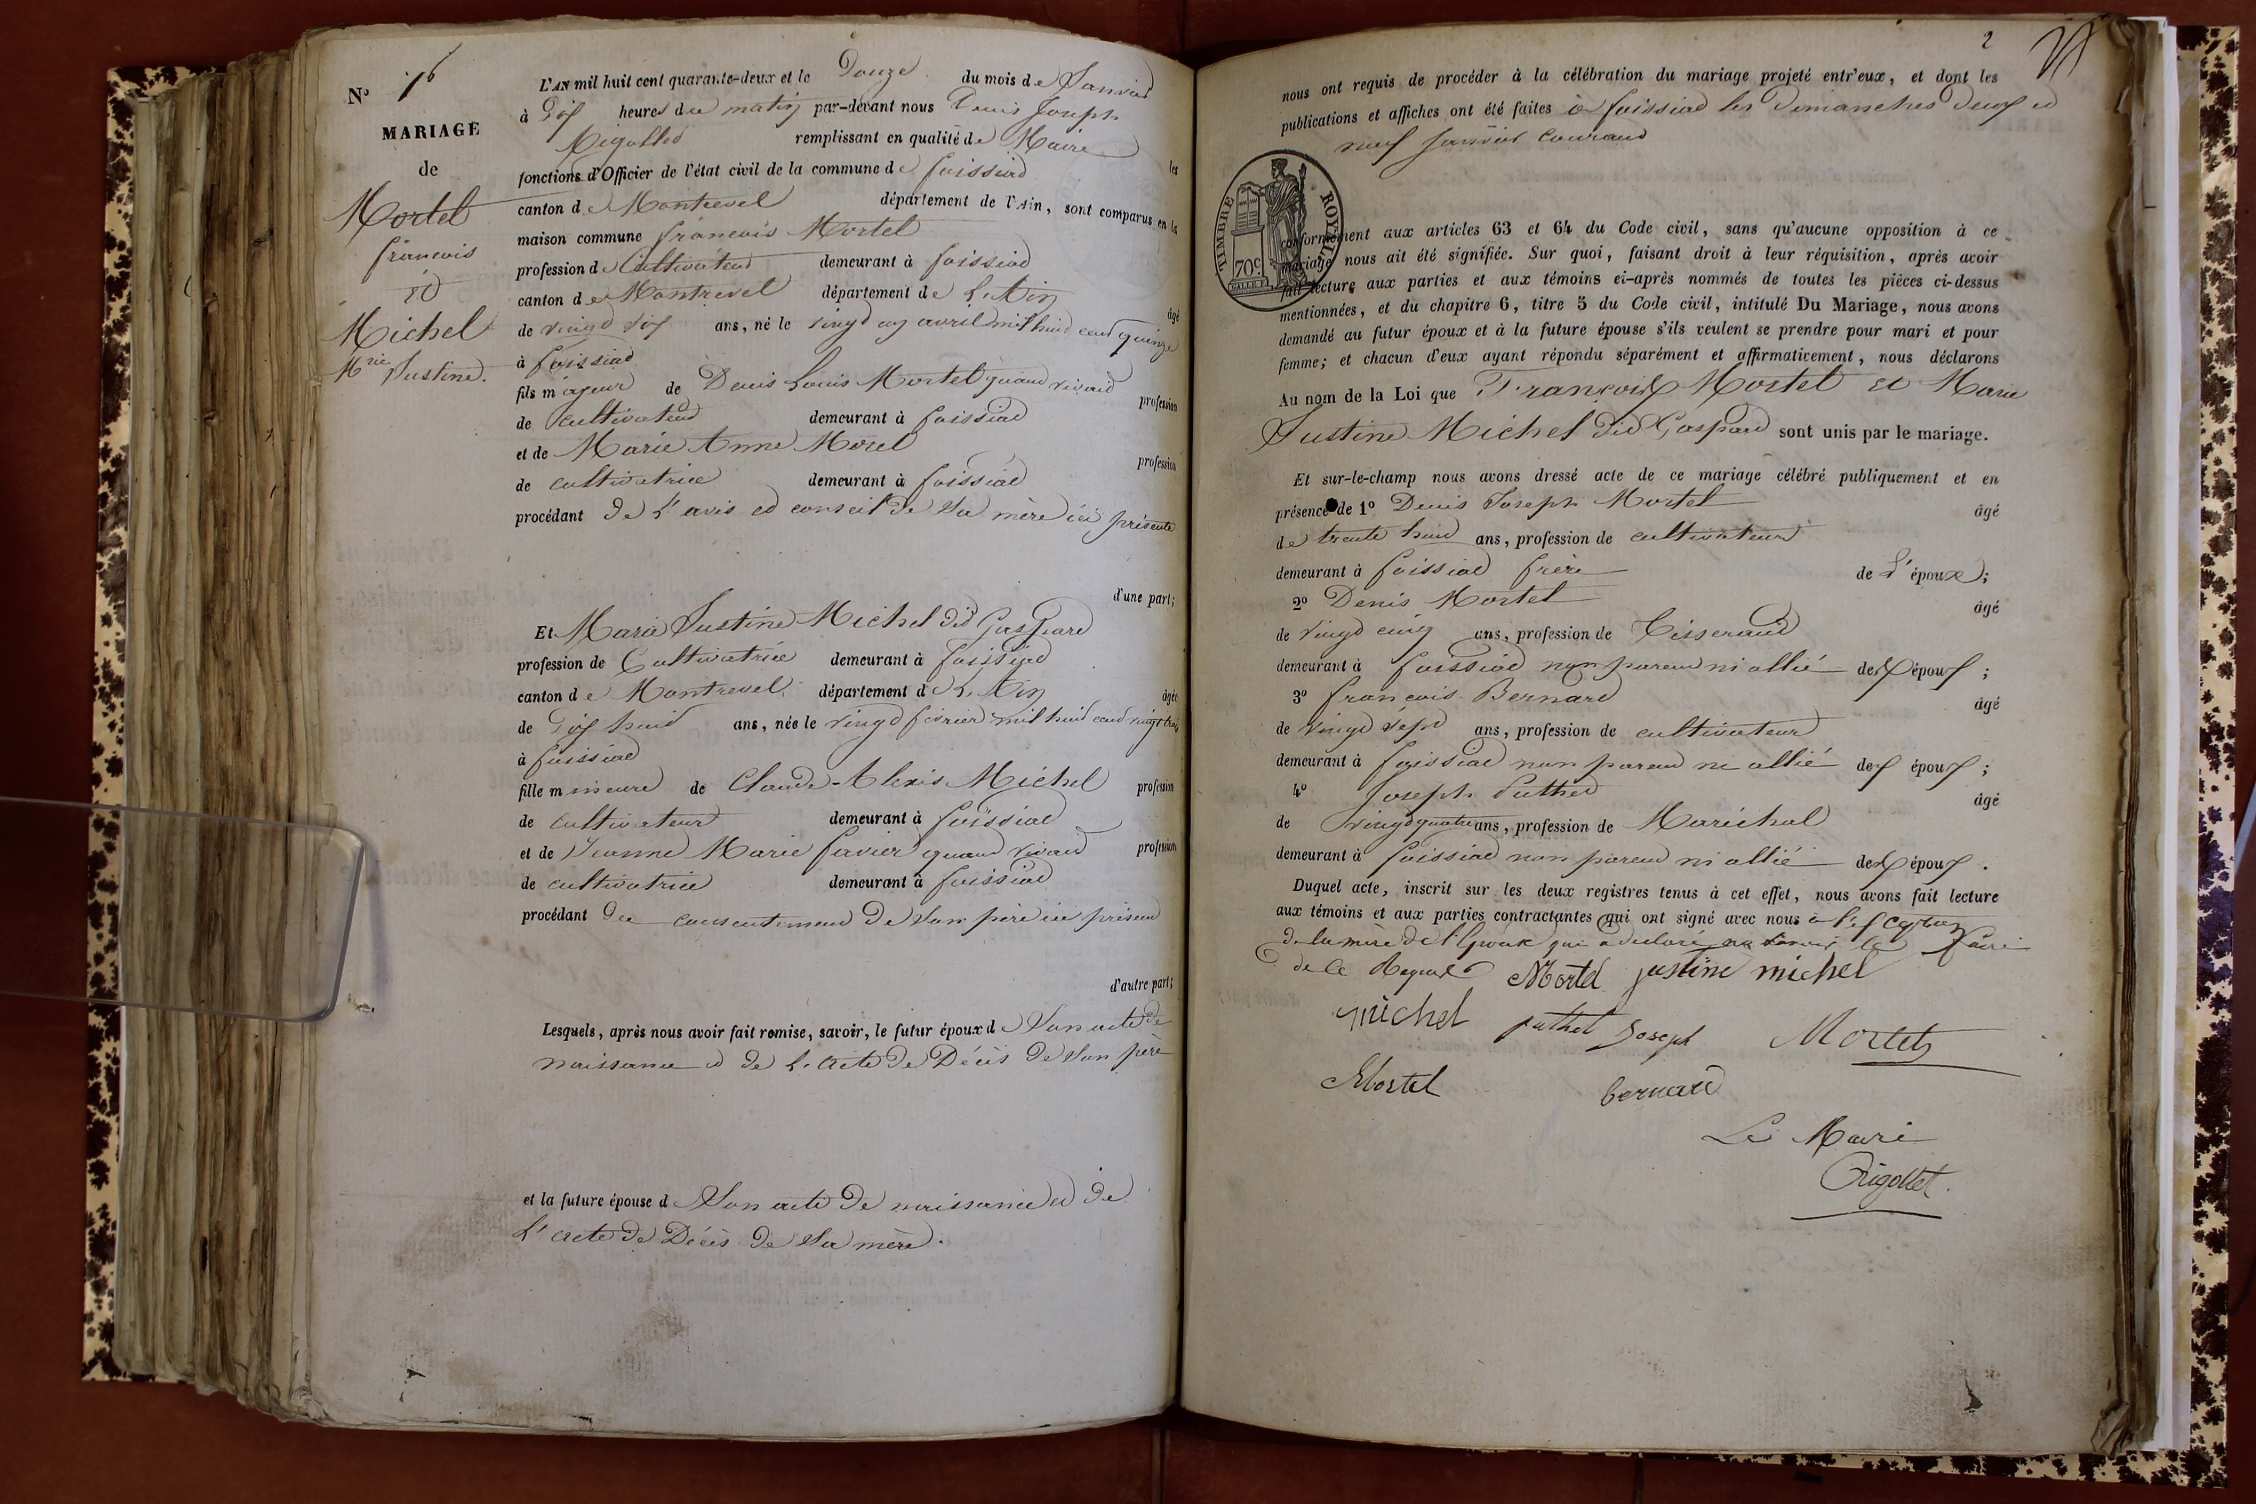 N° 1er
MARIAGE
de
Mortel
françois
et
Michel
Mrie Justine.
L'AN mil huit cent quarante-deux et le Douze du mois de Janvier
à Dix heures du matin par-devant nous Denis Joseph
Rigollet remplissant en qualité de Maire les
fonctions d'Officier de l'état civil de la commune de foissiat
canton de Montrevel département de l'Ain, sont comparus en la
maison commune françois Mortel
profession de Cultivateur demeurant à foissiat
canton de Montrevel département de L'Ain âgé
de vingt six ans, né le vingt cinq avril mil huit cent quinze
à foissiat
fils majeur de Denis Louis Mortel quand vivait profession
de cultivateur demeurant à foissiat
et de Marie Anne Morel profession
de cultivatrice demeurant à foissiat
procédant de L'avis et conseil de sa mère ici présente
d'une part;
Et Marie Justine Michel dit Gaspard
profession de Cultivatrice demeurant à foissiat
canton de Montrevel département de L'Ain âgée
de Dix huit ans, née le vingt février mil huit cent vingt trois
à foissiat
fille mineure de Claude-Alexis Michel profession
de cultivateur demeurant à foissiat
et de Jeanne Marie favier quand vivait profession
de cultivatrice demeurant à foissiat
procédant du consentement de son père ici présent
d'autre part;
Lesquels, après nous avoir fait remise, savoir, le futur époux de Son acte de
naissance et de L'acte de Décès de son père
et la future épouse de Son acte de naissance et de
L'acte de Décès de sa mère.
2
nous ont requis de procéder à la célébration du mariage projeté entr'eux, et dont les
publications et affiches ont été faites à foissiat les Dimanches deux et
neuf Janvier courant
TIMBRE ROYAL
70c.
conformément aux articles 63 et 64 du Code civil, sans qu'aucune opposition à ce
mariage nous ait été signifiée. Sur quoi, faisant droit à leur réquisition, après avoir
fait lecture aux parties et aux témoins ci-après nommés de toutes les pièces ci-dessus
mentionnées, et du chapitre 6, titre 5 du Code civil, intitulé Du Mariage, nous avons
demandé au futur époux et à la future épouse s'ils veulent se prendre pour mari et pour
femme; et chacun d'eux ayant répondu séparément et affirmativement, nous déclarons
Au nom de la Loi que François Mortel et Marie
Justine Michel dit Gaspard sont unis par le mariage.
Et sur-le-champ nous avons dressé acte de ce mariage célébré publiquement et en
présence de 1° Denis Joseph Mortel âgé
de trente huit ans, profession de cultivateur
demeurant à foissiat frère de L'époux;
2° Denis Mortel âgé
de vingt cinq ans, profession de Tisserand
demeurant à foissiat non parent ni allié des époux;
3° françois Bernard âgé
de vingt sept ans, profession de cultivateur
demeurant à foissiat non parent ni allié des époux;
4° Joseph Puthet âgé
de vingt quatre ans, profession de Maréchal
demeurant à foissiat non parent ni allié des époux.
Duquel acte, inscrit sur les deux registres tenus à cet effet, nous avons fait lecture
aux témoins et aux parties contractantes qui ont signé avec nous à l'exception
de la mère de l'époux qui a déclaré ne savoir le faire
de ce Requise Mortel justine michel
michel puthet Joseph Mortel
Mortel bernard
Le Maire
Rigollet.